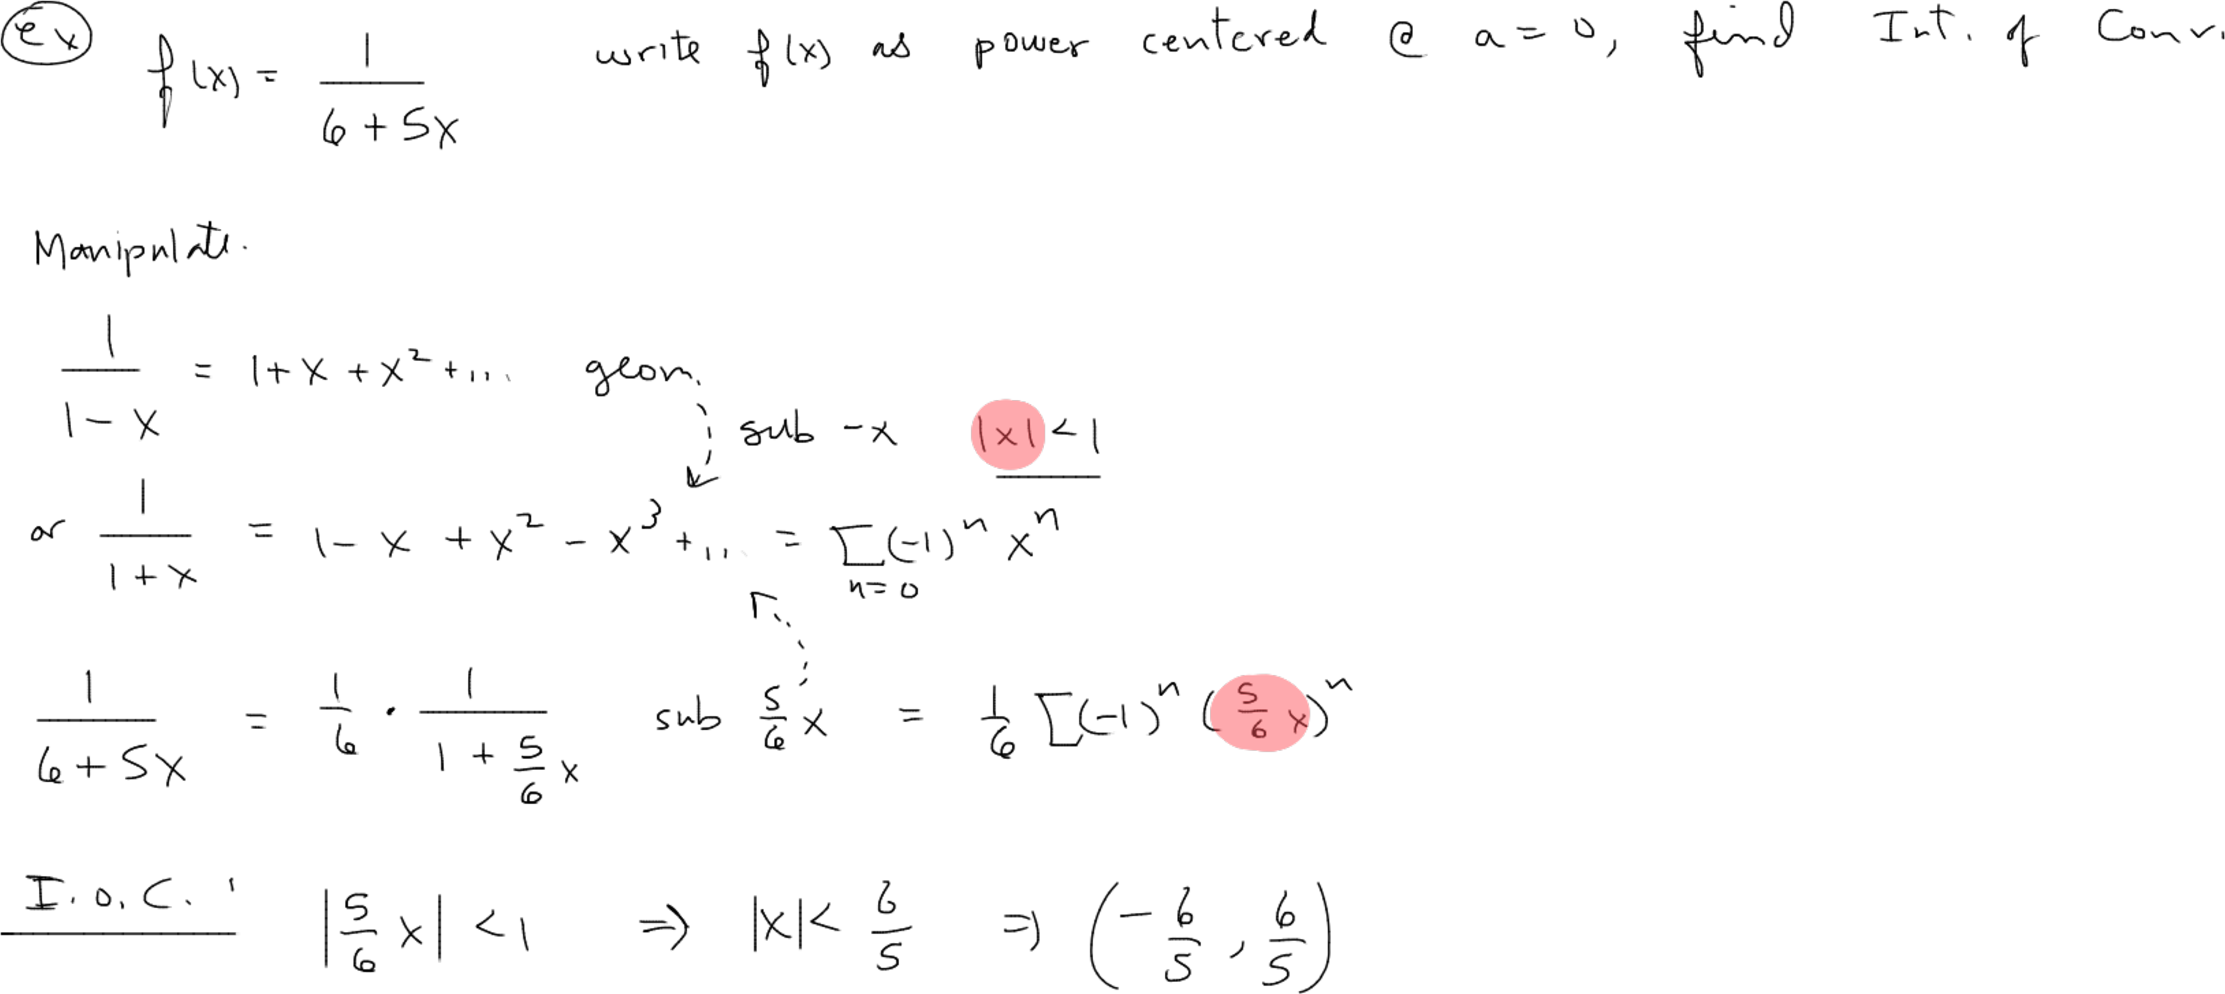 Ex f(x) = 1/(6+5x) write f(x) as power centered @ a = 0, find Int. of Conv.
Manipulate.
1/(1-x) = 1 + x + x² + ... geom.
sub -x |x| < 1
or 1/(1+x) = 1 - x + x² - x³ + ... = Σ_{n=0} (-1)ⁿ xⁿ
1/(6+5x) = 1/6 · 1/(1 + 5/6 x) sub 5/6 x = 1/6 Σ(-1)ⁿ (5/6 x)ⁿ
I.O.C. |5/6 x| < 1 ⇒ |x| < 6/5 ⇒ (-6/5, 6/5)